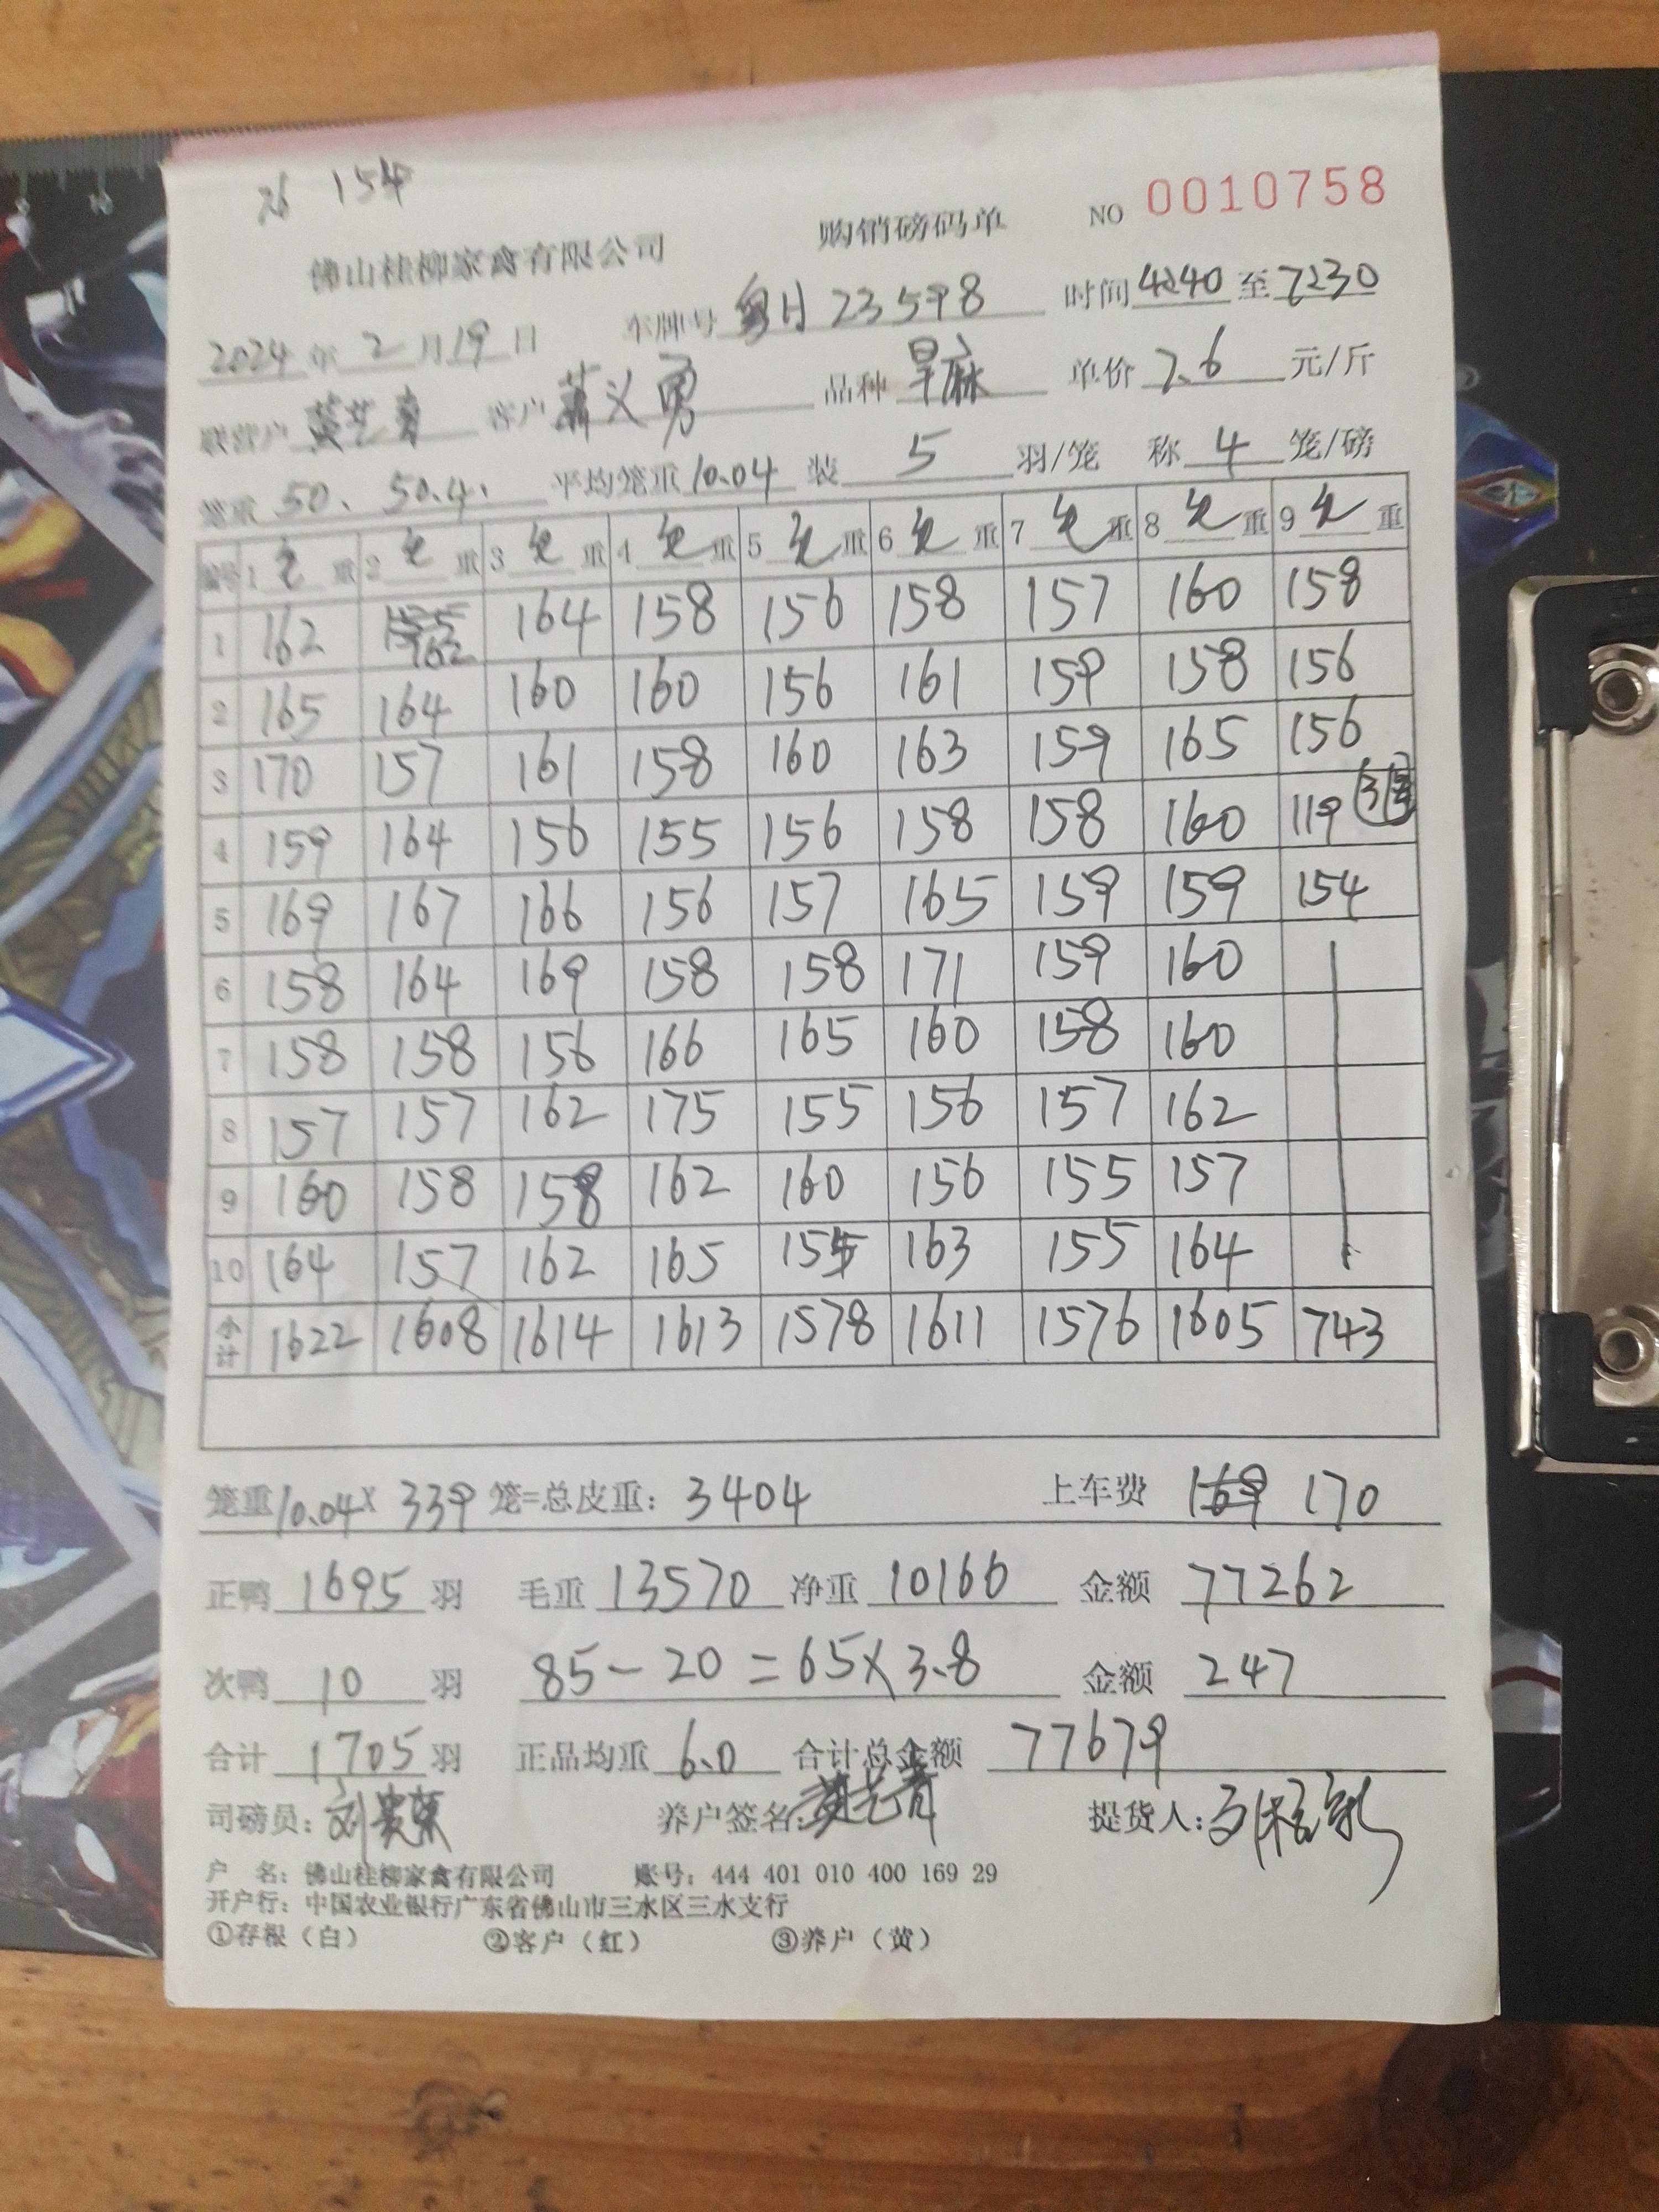 26 154
佛山桂柳家禽有限公司 购销磅码单 NO 0010758
2024 年 2 月 19 日 车牌号 粤H 23598 时间 4:40 至 7:30
联营户 黄艺青 客户 萧义勇 品种 旱麻 单价 7.6 元/斤
笼重 50、50.4、 平均笼重 10.04 装 5 羽/笼 称 4 笼/磅
编号 1 毛 重 2 毛 重 3 毛 重 4 毛 重 5 毛 重 6 毛 重 7 毛 重 8 毛 重 9 毛 重
1 162 162 164 158 156 158 157 160 158
2 165 164 160 160 156 161 159 158 156
3 170 157 161 158 160 163 159 165 156
4 159 164 156 155 156 158 158 160 119 3笼
5 169 167 166 156 157 165 159 159 154
6 158 164 169 158 158 171 159 160
7 158 158 156 166 165 160 158 160
8 157 157 162 175 155 156 157 162
9 160 158 158 162 160 156 155 157
10 164 157 162 165 155 163 155 164
小计 1622 1608 1614 1613 1578 1611 1576 1605 743
笼重 10.04 x 339 笼=总皮重: 3404 上车费 169 170
正鸭 1695 羽 毛重 13570 净重 10166 金额 77262
次鸭 10 羽 85-20=65×3.8 金额 247
合计 1705 羽 正品均重 6.0 合计总金额 77679
司磅员: 养户签名: 黄艺青 提货人:
户 名: 佛山桂柳家禽有限公司 账号: 444 401 010 400 169 29
开户行: 中国农业银行广东省佛山市三水区三水支行
①存根（白） ②客户（红） ③养户（黄）